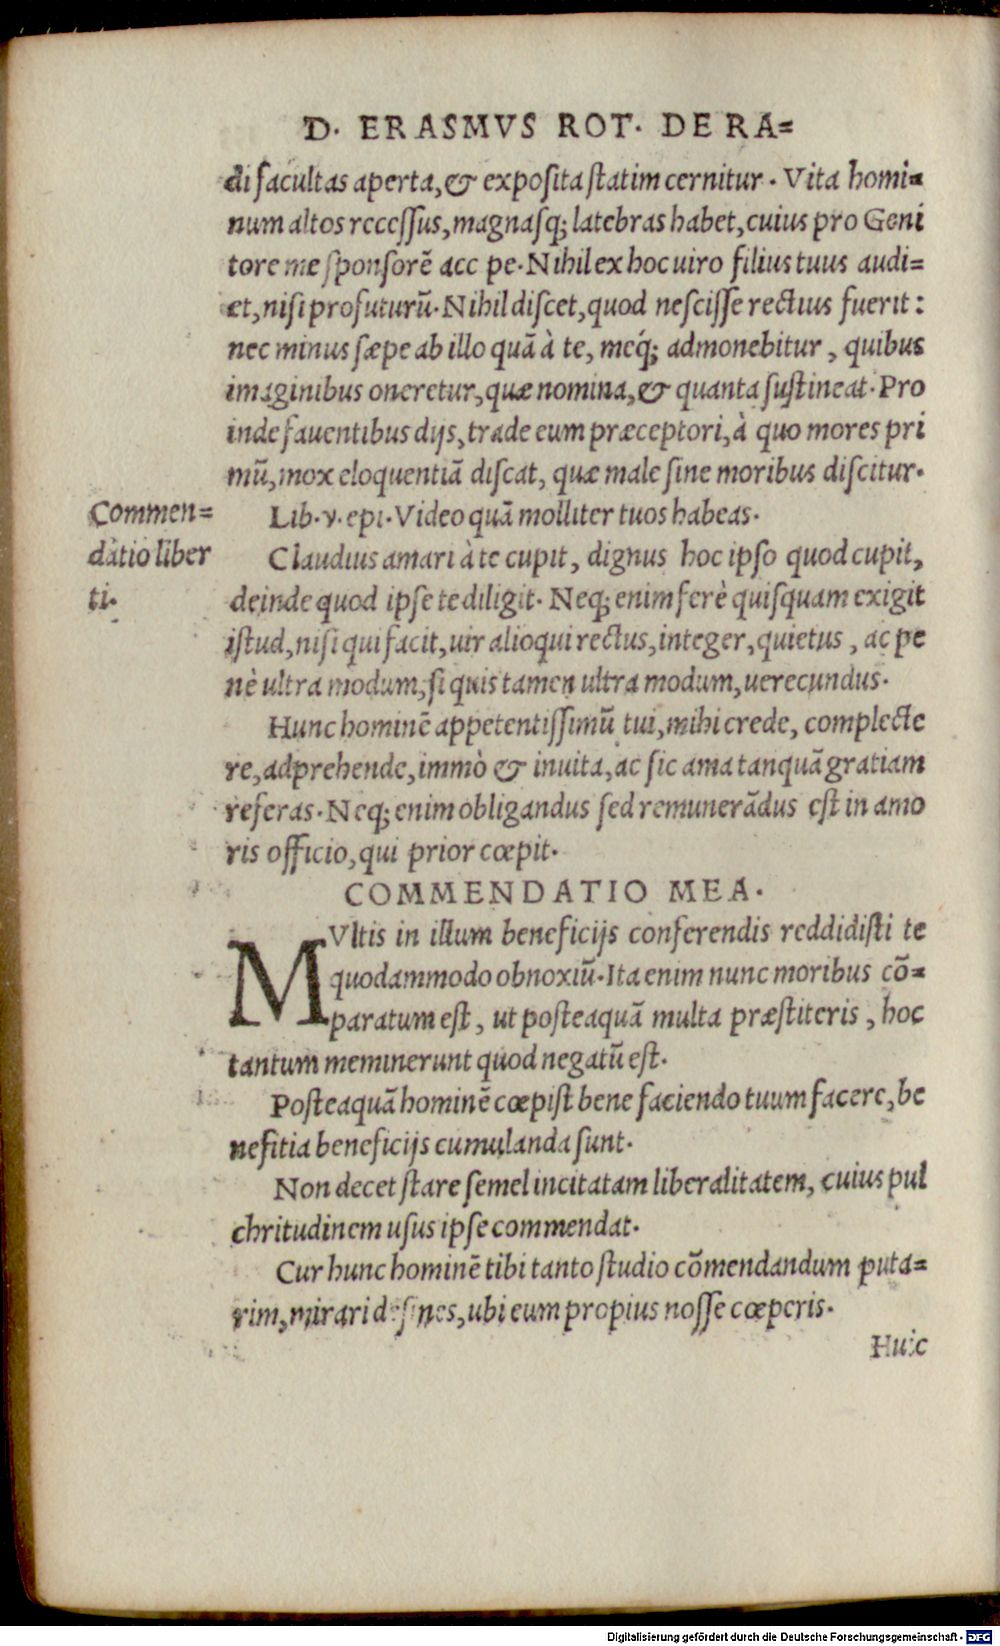 D. ERASMVS ROT. DE RA=
di facultas aperta, & exposita statim cernitur. Vita homi=
num altos recessus, magnasq; latebras habet, cuius pro Geni
tore me sponsorē acc pe. Nihil ex hoc uiro filius tuus audi=
et, nisi profuturū. Nihil discet, quod nescisse rectius fuerit:
nec minus sæpe ab illo quā à te, meq́; admonebitur, quibus
imaginibus oneretur, quæ nomina, & quanta sustineat. Pro
inde fauentibus dijs, trade eum præceptori, à quo mores pri
mū, mox eloquentiā discat, quæ male sine moribus discitur.
Lib. v. epi. Video quā molliter tuos habeas.
Commen=
datio liber
ti.
Claudius amari à te cupit, dignus hoc ipso quod cupit,
deinde quod ipse te diligit. Neq; enim ferè quisquam exigit
istud, nisi qui facit, uir alioqui rectus, integer, quietus, ac pe
nè ultra modum, si quis tamen ultra modum, uerecundus.
Hunc hominē appetentissimū tui, mihi crede, complecte
re, adprehende, immò & inuita, ac sic ama tanquā gratiam
referas. Neq; enim obligandus sed remunerādus est in amo
ris officio, qui prior cœpit.
COMMENDATIO MEA.
MVltis in illum beneficijs conferendis reddidisti te
quodammodo obnoxiū. Ita enim nunc moribus cō=
paratum est, ut posteaquā multa præstiteris, hoc
tantum meminerunt quod negatū est.
Posteaquā hominē cœpist bene faciendo tuum facere, be
nefitia beneficijs cumulanda sunt.
Non decet stare semel incitatam liberalitatem, cuius pul
chritudinem usus ipse commendat.
Cur hunc hominē tibi tanto studio cōmendandum puta=
rim, mirari desines, ubi eum propius nosse cœperis.
Huic
Digitalisierung gefördert durch die Deutsche Forschungsgemeinschaft - DFG